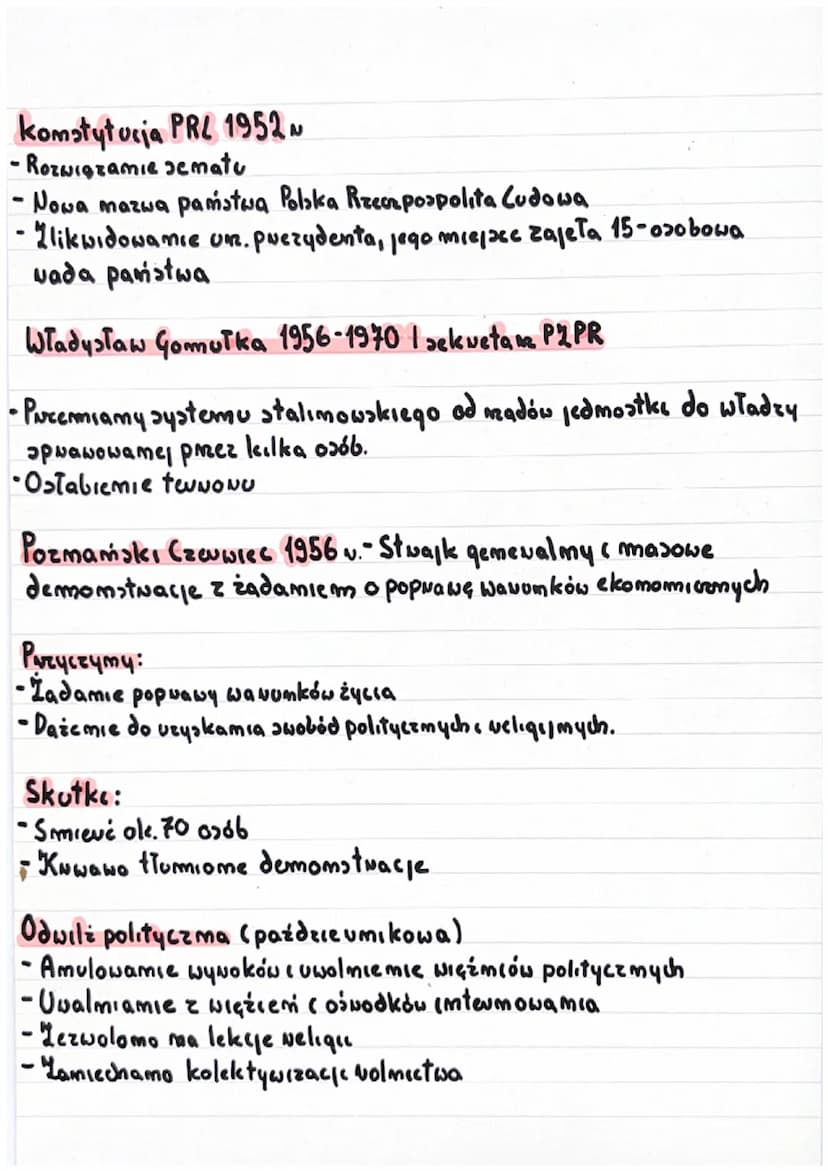 Konstytucja PRL 1952 r
- Rozwiązanie senatu
- Nowa nazwa państwa Polska Rzeczpospolita Ludowa
- Zlikwidowanie urz. prezydenta, jego miejsce zajęła 15-osobowa
rada państwa
Władysław Gomułka 1956-1970 I sekretarz PZPR
- Przemiany systemu stalinowskiego od rządów jednostki do władzy
sprawowanej przez kilka osób.
- Osłabienie terroru
Poznański Czerwiec 1956 r. - Strajk generalny i masowe
demonstracje z żądaniem o poprawę warunków ekonomicznych
Przyczyny:
- Żądanie poprawy warunków życia
- Dążenie do uzyskania swobód politycznych i religijnych.
Skutki:
- Śmierć ok. 70 osób
- Krwawo tłumione demonstracje
Odwilż polityczna (październikowa)
- Anulowanie wyroków i uwolnienie więźniów politycznych
- Uwalnianie z więzień i ośrodków internowania
- Zezwolono na lekcje religii
- Zaniechano kolektywizacji rolnictwa